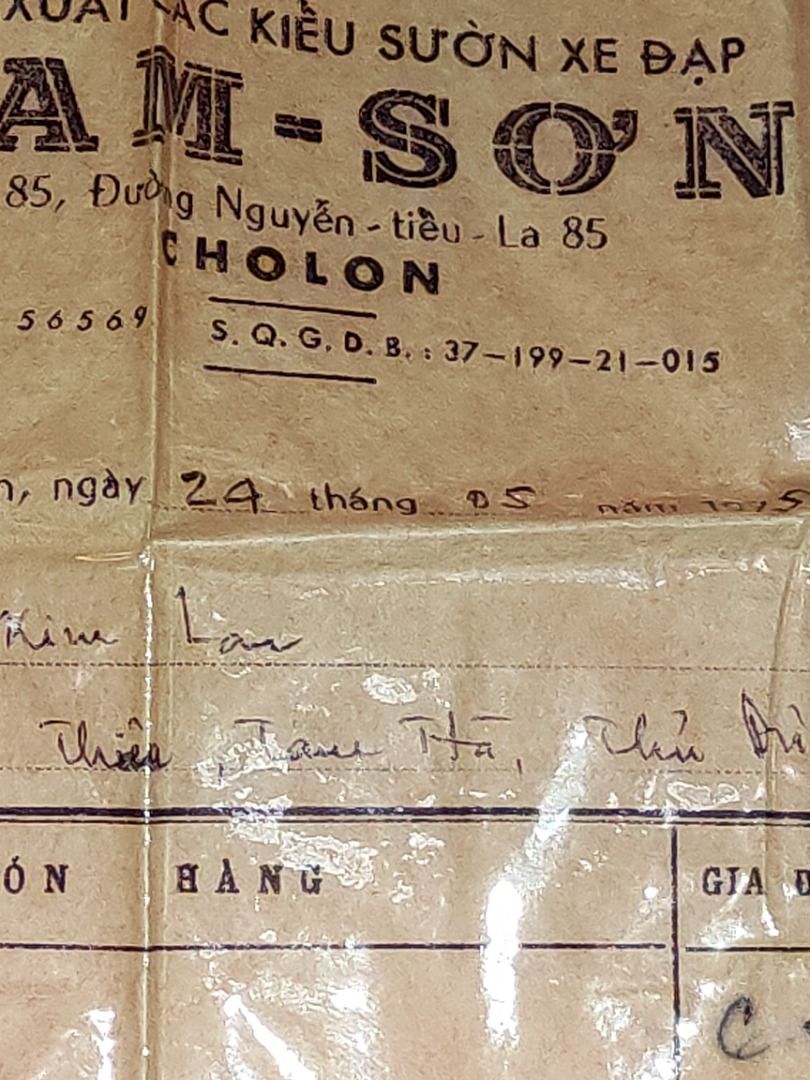 XUẤT CÁC KIỂU SƯỜN XE ĐẠP
AM-SƠN
85, Đường Nguyễn-tiểu-La 85
CHOLON
56569
S. Q. G. D. B. : 37-199-21-015
n, ngày 24 tháng 05 năm 1975
Kim Lan
Thiên, Tam Hà, Thủ Đứ
ÓN HÀNG GIA Đ
C